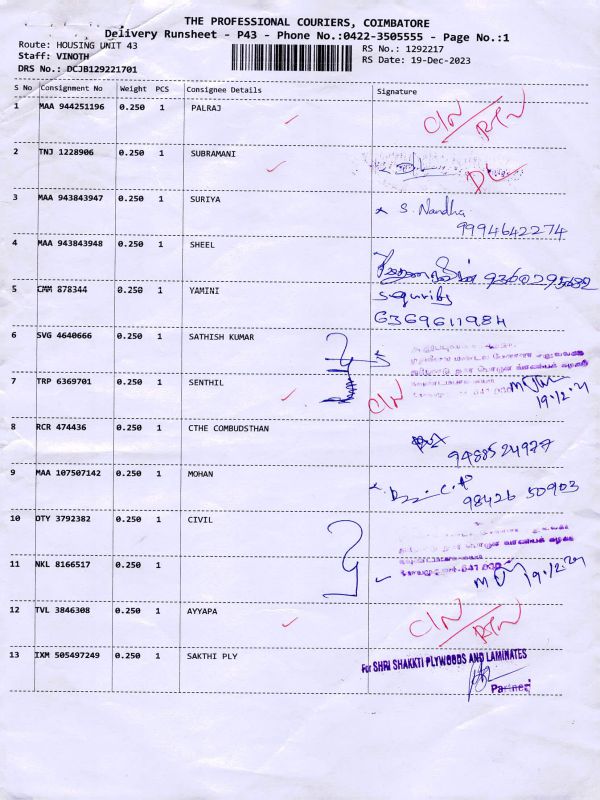 THE PROFESSIONAL COURIERS, COIMBATORE
Delivery Runsheet - P43 - Phone No.:0422-3505555 - Page No.:1
Route: HOUSING UNIT 43
RS No.: 1292217
Staff: VINOTH
RS Date: 19-Dec-2023
DRS No.: DCJB129221701
S No Consignment No Weight PCS Consignee Details Signature
1 MAA 944251196 0.250 1 PALRAJ C/N RTN
2 TNJ 1228906 0.250 1 SUBRAMANI DL
3 MAA 943843947 0.250 1 SURIYA S. Nandha
9994642274
4 MAA 943843948 0.250 1 SHEEL 9360295682
5 CMM 878344 0.250 1 YAMINI
6369611984
6 SVG 4640666 0.250 1 SATHISH KUMAR
7 TRP 6369701 0.250 1 SENTHIL C/N 19.12.21
8 RCR 474436 0.250 1 CTHE COMBUDSTHAN
9488524977
9 MAA 107507142 0.250 1 MOHAN
98426 50903
10 OTY 3792382 0.250 1 CIVIL
11 NKL 8166517 0.250 1 19.12.21
12 TVL 3846308 0.250 1 AYYAPA C/N RTN
13 IXM 505497249 0.250 1 SAKTHI PLY For SHRI SHAKKTI PLYWOODS AND LAMINATES
Partner